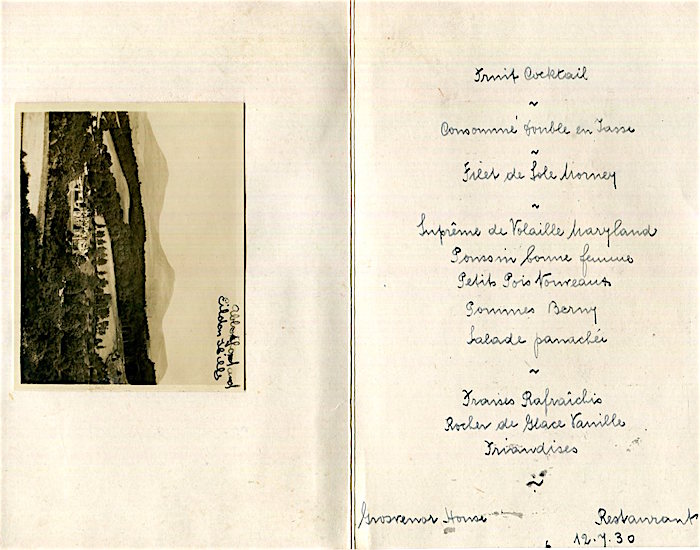 Abbotsford and
Eildon Hills
Fruit Cocktail
~
Consommé double en Tasse
~
Filet de Sole Morney
~
Suprême de Volaille Maryland
Poussin bonne femme
Petits Pois Nouveaux
Pommes Berny
Salade panachée
~
Fraises Rafraîchis
Rocher de Glace Vanille
Friandises
~
Grosvenor House Restaurant
12.7.30